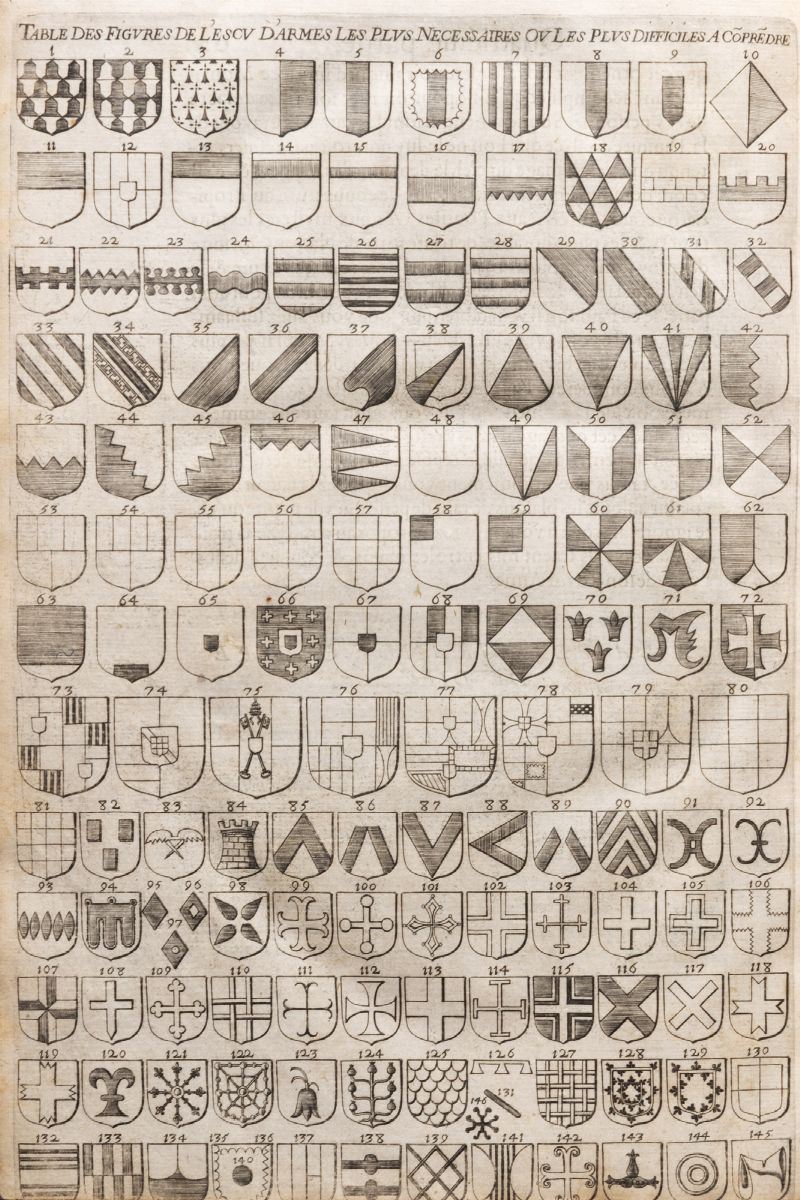 TABLE DES FIGVRES DE L'ESCV D'ARMES LES PLVS NECESSAIRES OV LES PLVS DIFFICILES A CÕPRẼDRE
1 2 3 4 5 6 7 8 9 10
11 12 13 14 15 16 17 18 19 20
21 22 23 24 25 26 27 28 29 30 31 32
33 34 35 36 37 38 39 40 41 42
43 44 45 46 47 48 49 50 51 52
53 54 55 56 57 58 59 60 61 62
63 64 65 66 67 68 69 70 71 72
73 74 75 76 77 78 79 80
81 82 83 84 85 86 87 88 89 90 91 92
93 94 95 96 98 99 100 101 102 103 104 105 106
97
107 108 109 110 111 112 113 114 115 116 117 118
119 120 121 122 123 124 125 126 127 128 129 130
146 131
132 133 134 135 136 137 138 139 141 142 143 144 145
140